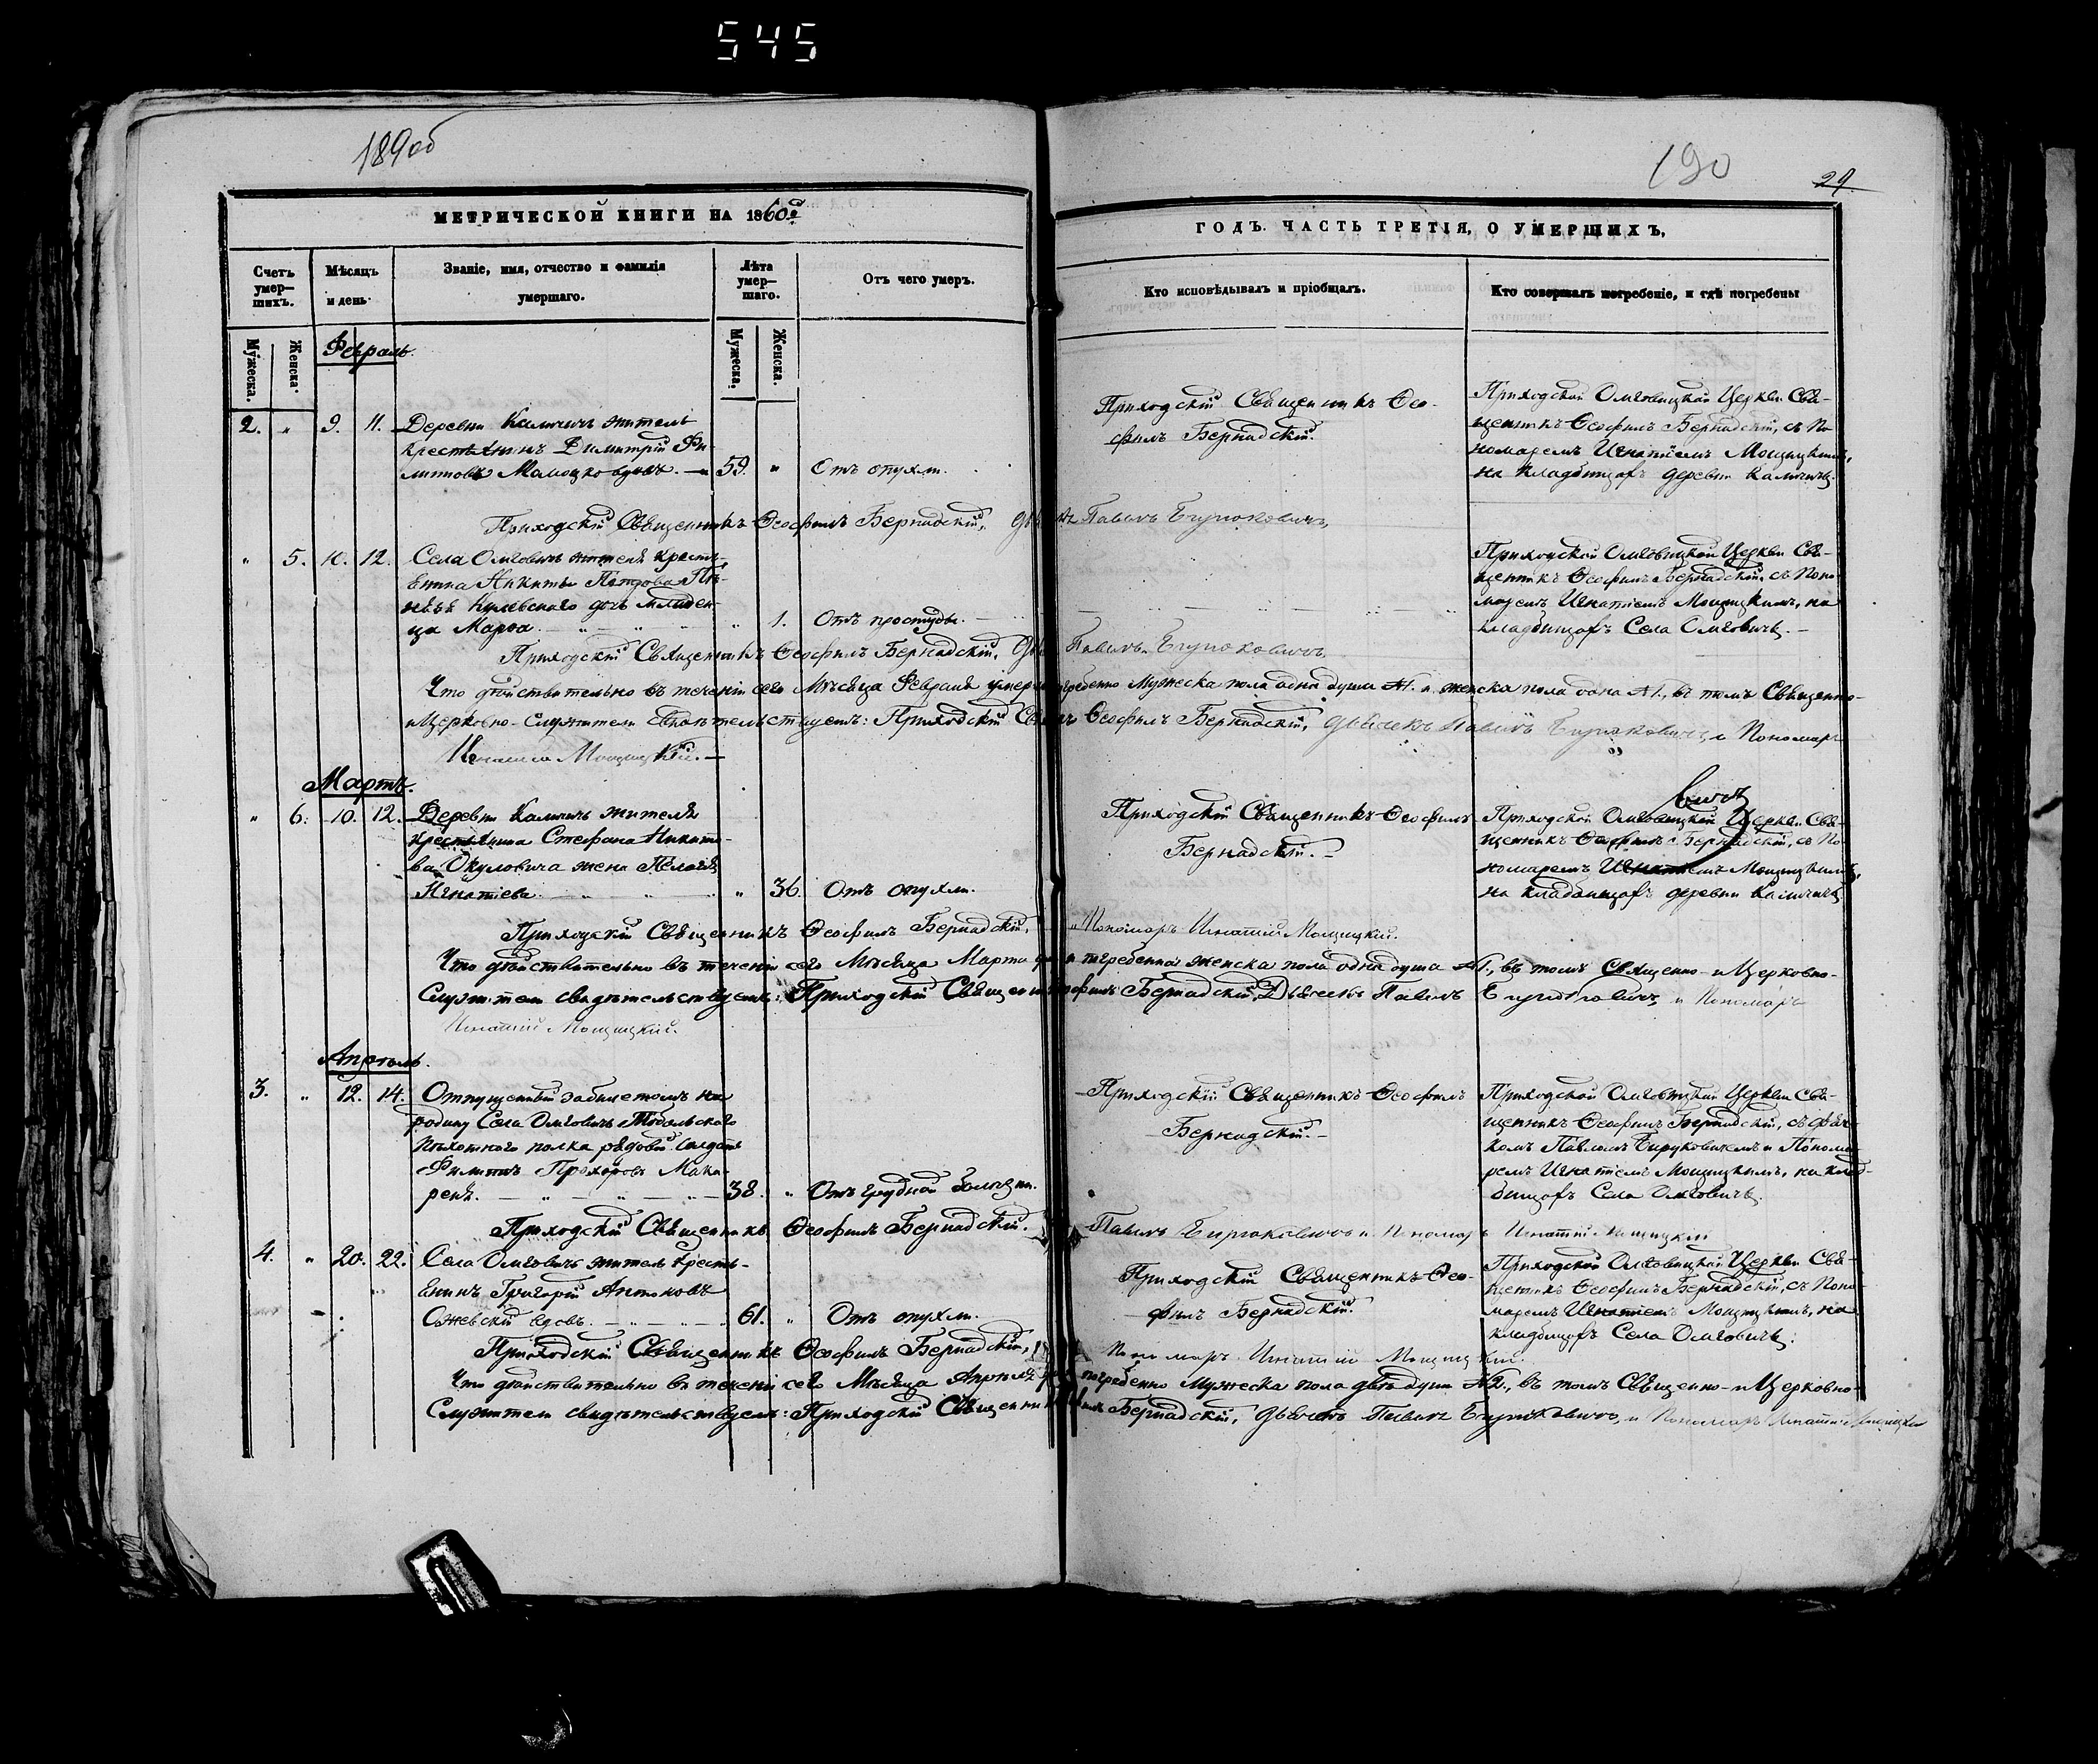 545
189об
190
29.
МЕТРИЧЕСКОЙ КНИГИ НА 1860й
ГОДЪ. ЧАСТЬ ТРЕТІЯ, О УМЕРШИХЪ,
Счетъ умер-шихъ.
Мѣсяцъ и день.
Званіе, имя, отчество и фамилія умершаго.
Лѣта умер-шаго.
Отъ чего умеръ.
Кто исповѣдывалъ и пріобщалъ.
Кто совершалъ погребеніе, и гдѣ погребены
Мужеска.
Женска.
Мужеска.
Женска.
Февраль.
2. „ 9. 11. Деревни Каличичъ житель
крестьянинъ Димитрій Фи-
липповъ вдовъ. — 59. „ Отъ опухли.
Приходскій Священникъ Ѳео-
филъ Бернадскій.
Приходской Омговицкой Церкви Свя-
щенникъ Ѳеофилъ Бернадскій, съ По-
номаремъ Игнатіемъ Мощицкимъ,
на кладбищѣ деревни Каличичъ.
Приходскій Священникъ Ѳеофилъ Бернадскій, Павелъ Бируковичъ,
„ 5. 10. 12. Села Омговичъ жителя кресть-
янина Никиты
дочь младен-
ца Марѳа. „ 1. Отъ простуды.
Приходской Омговицкой Церкви Свя-
щенникъ Ѳеофилъ Бернадскій, съ Поно-
маремъ Игнатіемъ Мощицкимъ, на
кладбищѣ Села Омговичъ. —
Приходскій Священникъ Ѳеофилъ Бернадскій, Павелъ Бируковичъ,
Что дѣйствительно въ теченіи сего Мѣсяца Февраля погребенно Мужеска пола одна душа №1. и женска пола одна №1., въ томъ Священно-
и Церковно-Служители свидѣтельствуемъ: Приходскій Ѳеофилъ Бернадскій, Дьячекъ Павелъ Бируковичъ, и Пономарь
Игнатій Мощицкій. —
Мартъ.
„ 6. 10. 12. Деревни Каличичъ жителя
крестьянина Стефана Никито-
ва Окуловича жена Пелагея
Игнатіева „ 36. Отъ опухли.
Приходскій Священникъ Ѳеофилъ
Бернадскій. —
Приходской Омговицкой Церкви Свя-
щенникъ Ѳеофилъ Бернадскій, съ По-
номаремъ Игнатіемъ Мощицкимъ,
на кладбищѣ деревни Каличичъ
Приходскій Священникъ Ѳеофилъ Бернадскій, Пономарь Игнатій Мощицкій.
Что дѣйствительно въ теченіи сего Мѣсяца Марта погребенна женска пола одна душа №1., въ томъ Священно- и Церковно-
Служители свидѣтельствуемъ: Приходскій Бернадскій, Дьячекъ Павелъ Бируковичъ, и Пономарь
Игнатій Мощицкій.
Апрель.
3. „ 12. 14. Отпущенный за билетомъ на
родину Села Омговичъ Тобольскаго
пѣхотнаго полка рядовый солдатъ
Филиппъ Прохоровъ Мака-
ревъ. 38. „ Отъ грудной болезни.
Приходскій Священникъ Ѳеофилъ
Бернадскій. —
Приходской Омговицкой Церкви Свя-
щенникъ Ѳеофилъ Бернадскій, съ Дьяч-
комъ Павломъ Бируковичемъ и Понома-
ремъ Игнатіемъ Мощицкимъ, на клад-
бищѣ Села Омговичъ.
Приходскій Священникъ Ѳеофилъ Бернадскій. Павелъ Бируковичъ и Пономарь Игнатій Мощицкій
4. „ 20. 22. Села Омговичъ житель кресть-
янинъ Григорій Антоновъ
Ожевскій вдовъ. 61. „ Отъ опухли.
Приходскій Священникъ Ѳео-
филъ Бернадскій.
Приходской Омговицкой Церкви Свя-
щенникъ Ѳеофилъ Бернадскій, съ Поно-
маремъ Игнатіемъ Мощицкимъ, на
кладбищѣ Села Омговичъ.
Приходскій Священникъ Ѳеофилъ Бернадскій, Пономарь Игнатій Мощицкій.
Что дѣйствительно въ теченіи сего Мѣсяца Апреля погребенно Мужеска пола двѣ души №2., въ томъ Священно- и Церковно-
Служители свидѣтельствуемъ: Приходскій Бернадскій, Дьячекъ Павелъ Бируковичъ, и Пономарь Игнатій Мощицкій